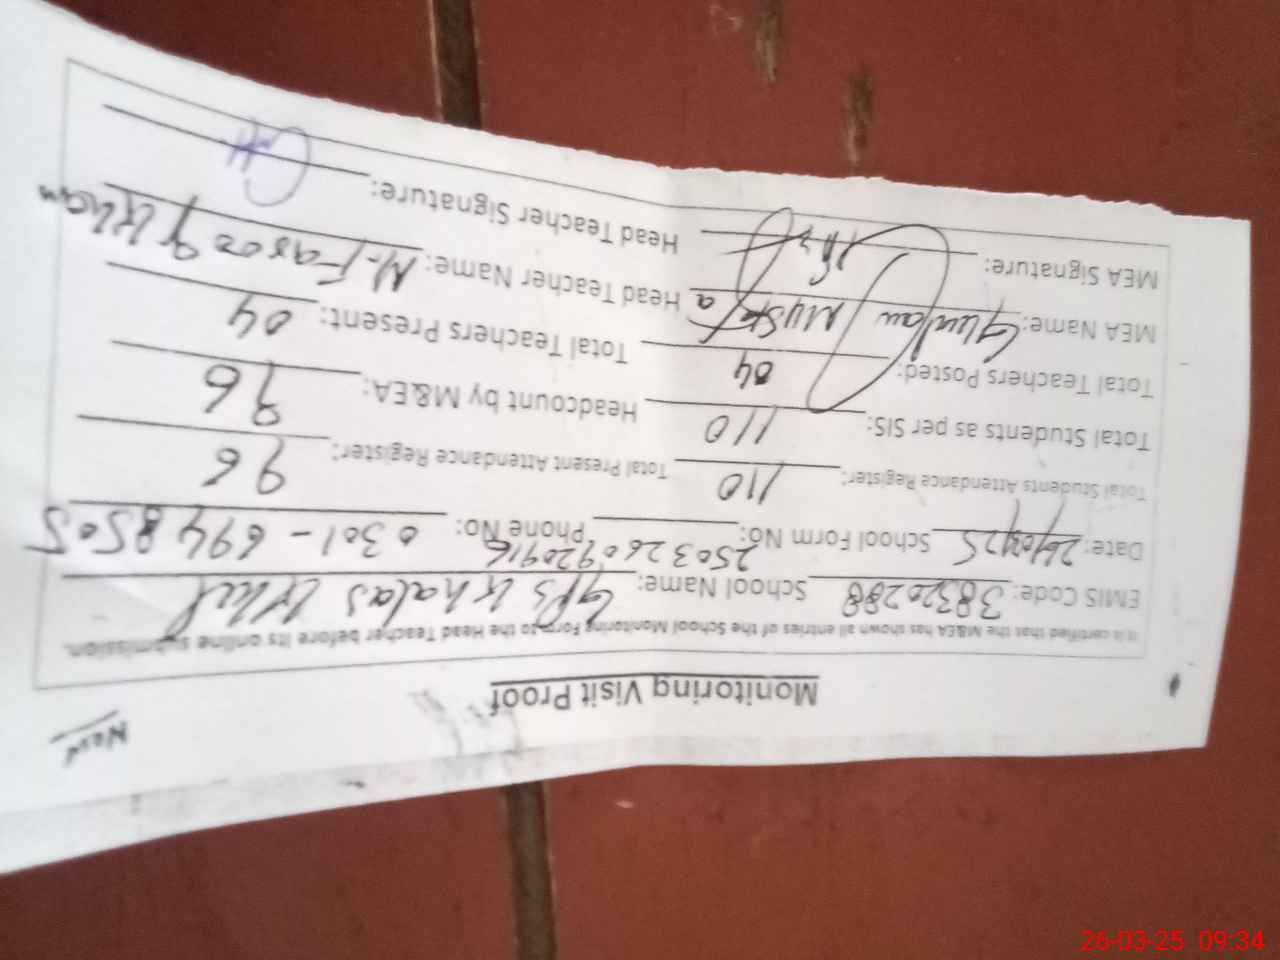 New
Monitoring Visit Proof
It is certified that the M&EA has shown all entries of the School Monitoring Form to the Head Teacher before its online submission.
EMIS Code: 38320288 School Name: GPS Khalas Khel
Date: School Form No: 2503260920916 Phone No: 0301-6948505
Total Students Attendance Register: 110 Total Present Attendant Register: 96
Total Students as per SIS: 110 Headcount by M&EA: 96
Total Teachers Posted: 04 Total Teachers Present: 04
MEA Name: Mustafa Head Teacher Name: M. Farooq Khan
MEA Signature: Head Teacher Signature:
26-03-25 09:34